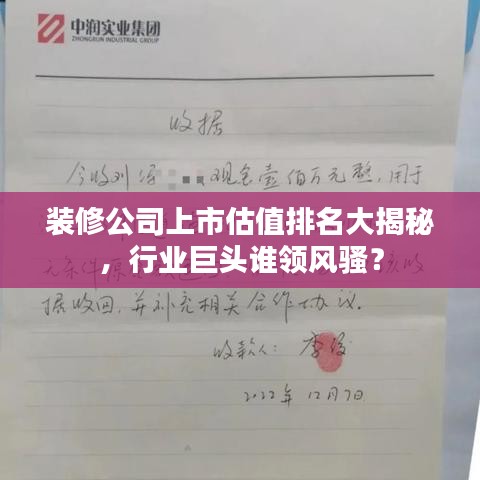 中润实业集团
ZHONGRUN INDUSTRIAL GROUP
收据
今收刘得 现金壹佰万元整,用于
装修公司上市估值排名大揭秘
,行业巨头谁领风骚?
元条件原
据收回,并补充相关合作协议。
收款人: 李俊
2022年12月7日